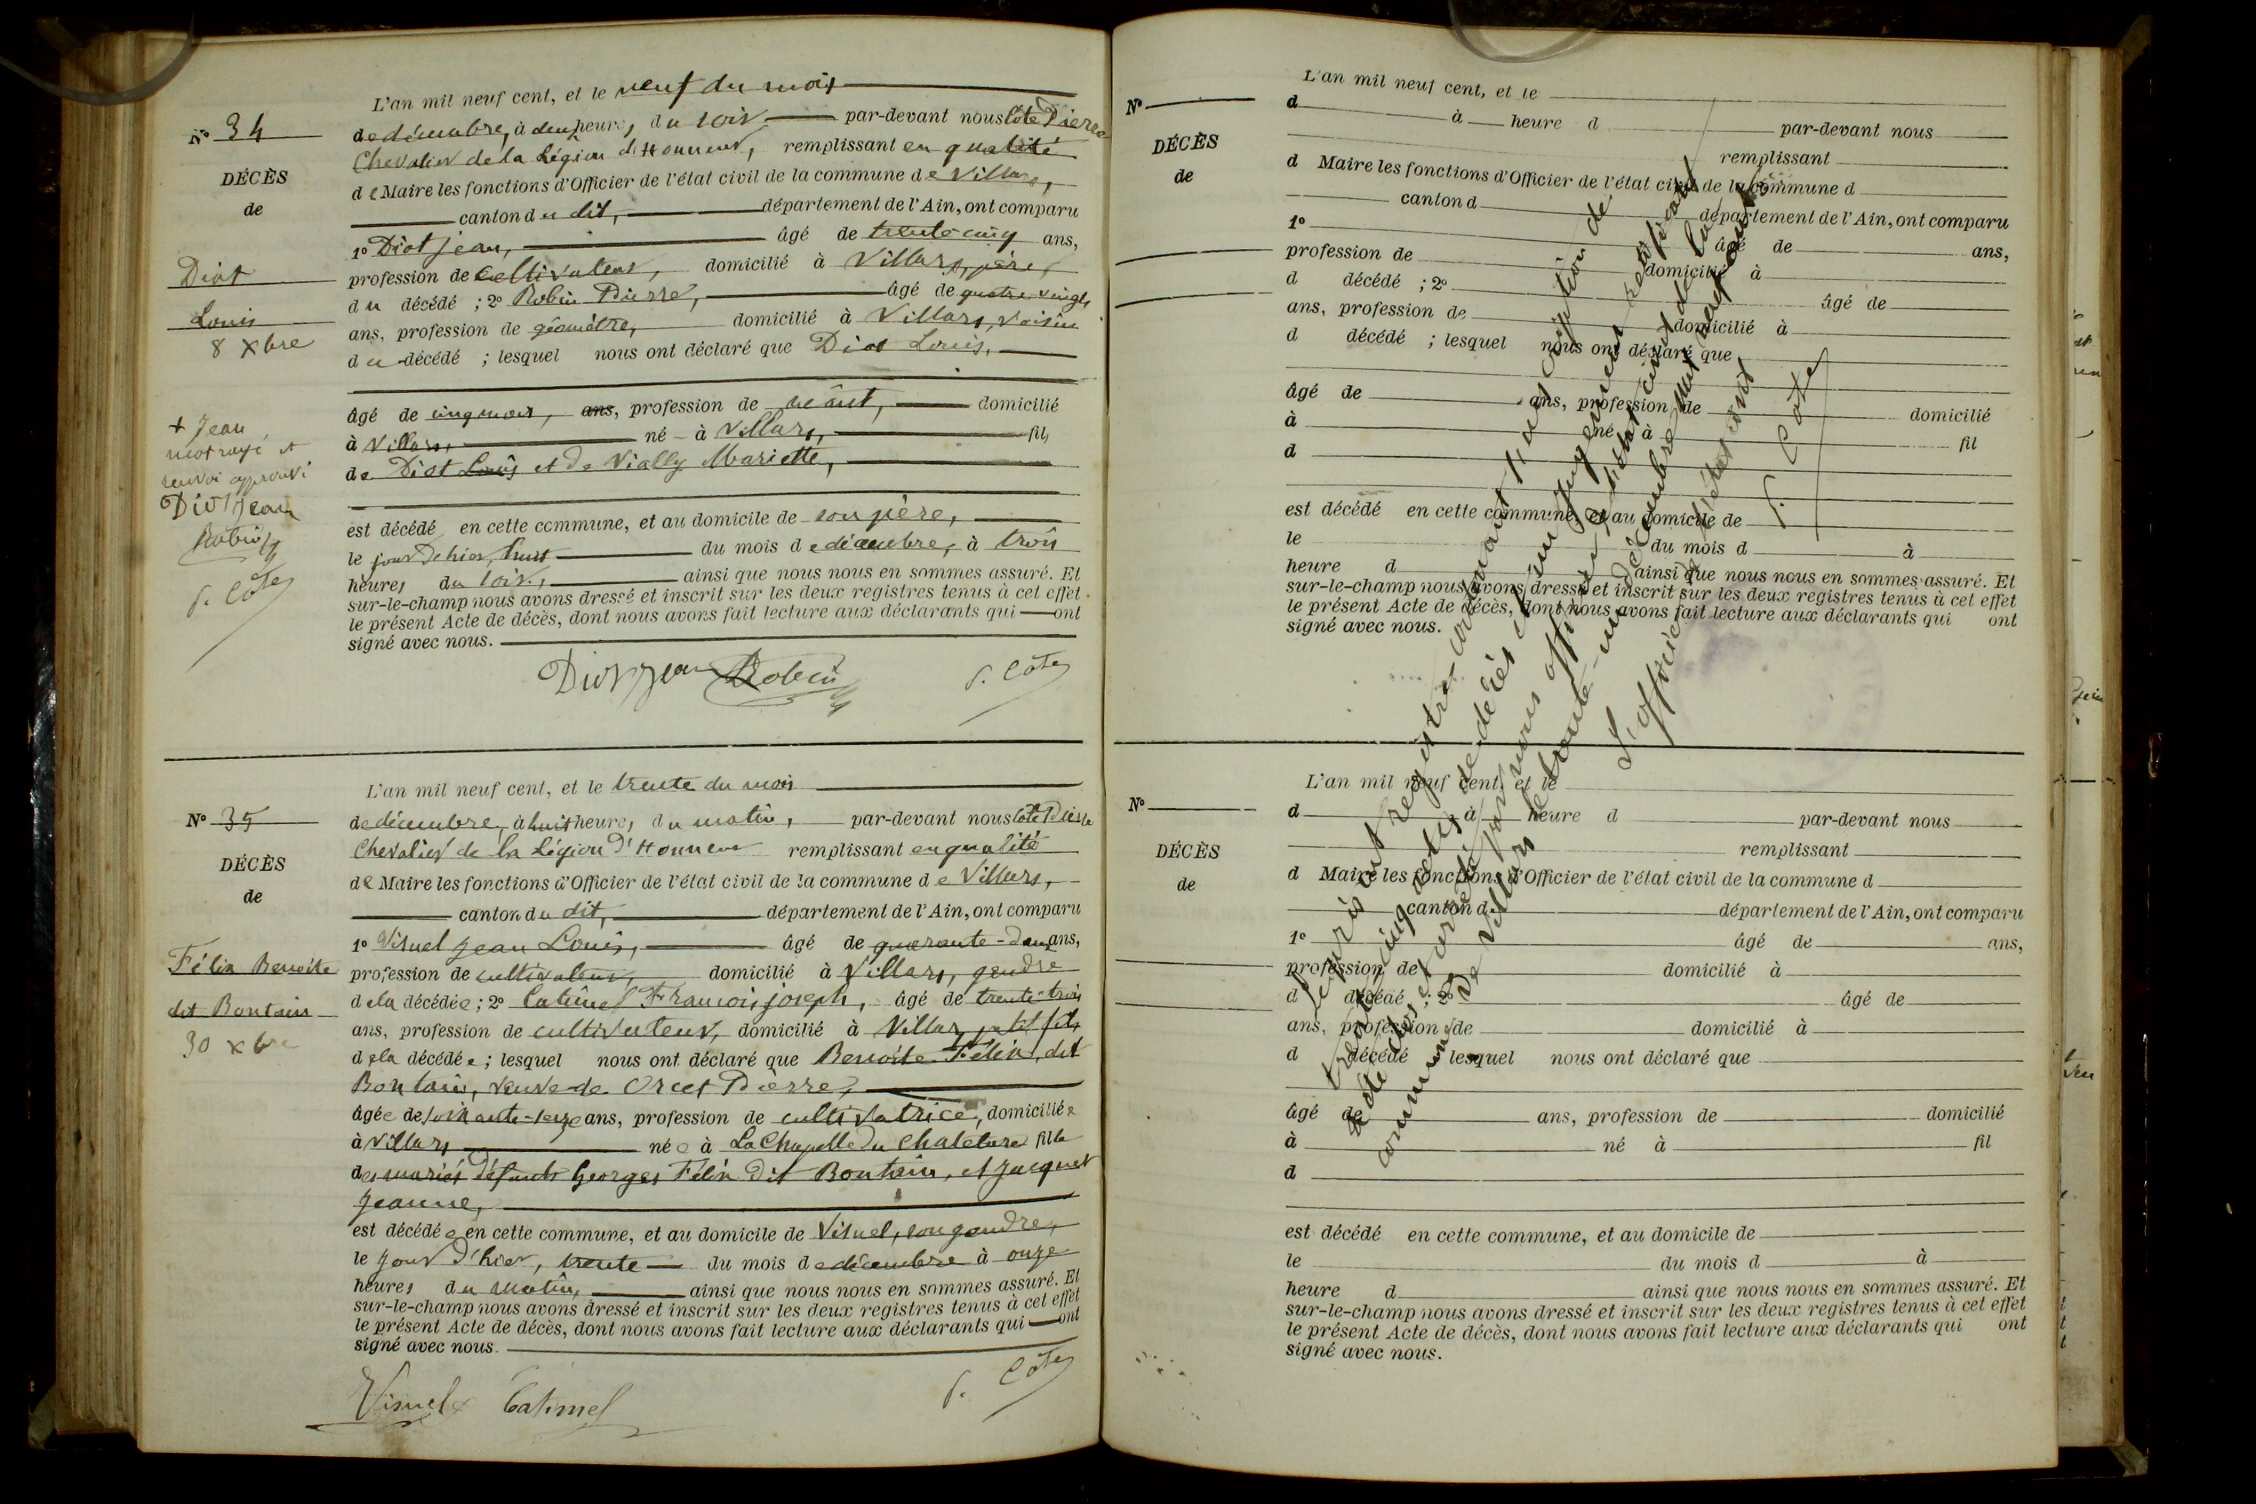 L'an mil neuf cent, et le neuf du mois
N° 34
de décembre, à deux heures, du soir par-devant nous Côte Pierre
Chevalier de la Légion d'Honneur, remplissant en qualité
DÉCÈS
de Maire les fonctions d'Officier de l'état civil de la commune de Villars,
de
canton du dit, département de l'Ain, ont comparu
1° Diot Jean, âgé de trente cinq ans,
Diot
profession de cultivateur, domicilié à Villars, père,
du décédé ; 2° Robin Pierre, âgé de quatre vingts
Louis
ans, profession de géomètre, domicilié à Villars, voisin
8 Xbre
du décédé ; lesquel nous ont déclaré que Diot Louis,
âgé de cinq mois, ans, profession de néant, domicilié
+ Jean
à Villars, né à Villars, fils
mot rayé et
de Diot Louis et de Vially Mariette,
renvoi approuvé
Diot Jean
est décédé en cette commune, et au domicile de son père,
Robin
le jour d'hier, huit du mois de décembre, à trois
heures du soir, ainsi que nous nous en sommes assuré. Et
P. Côte
sur-le-champ nous avons dressé et inscrit sur les deux registres tenus à cet effet
le présent Acte de décès, dont nous avons fait lecture aux déclarants qui ont
signé avec nous.
Diot Jean Robin P. Côte
L'an mil neuf cent, et le trente du mois
N° 35
de décembre, à huit heures, du matin, par-devant nous Côte Pierre
Chevalier de la Légion d'Honneur remplissant en qualité
DÉCÈS
de Maire les fonctions d'Officier de l'état civil de la commune de Villars,
de
canton du dit, département de l'Ain, ont comparu
1° Visuel Jean Louis, âgé de quarante-deux ans,
Félix Benoîte
profession de cultivateur, domicilié à Villars, gendre
de la décédée ; 2° Catimel François Joseph, âgé de trente-trois
dit Bontain
ans, profession de cultivateur, domicilié à Villars, petit fils
30 Xbre
de la décédée ; lesquel nous ont déclaré que Benoîte Félix, dit
Bontain, veuve de Orcet Pierre,
âgée de soixante-seize ans, profession de cultivatrice, domiciliée
à Villars, née à La Chapelle du Chatelard fille
des mariés défunts Georges Félix dit Bontain, et Jacquet
Jeanne,
est décédée en cette commune, et au domicile de Visuel, son gendre,
le jour d'hier, trente du mois de décembre à onze
heures du matin, ainsi que nous nous en sommes assuré. Et
sur-le-champ nous avons dressé et inscrit sur les deux registres tenus à cet effet
le présent Acte de décès, dont nous avons fait lecture aux déclarants qui ont
signé avec nous.
Visuel Catimel P. Côte
L'an mil neuf cent, et le
N°
d à heure d par-devant nous
DÉCÈS
remplissant
de
d Maire les fonctions d'Officier de l'état civil de la commune d
canton d département de l'Ain, ont comparu
1° âgé de ans,
profession de domicilié à
d décédé ; 2° âgé de
ans, profession de domicilié à
d décédé ; lesquel nous ont déclaré que
âgé de ans, profession de domicilié
à né à fil
d
est décédé en cette commune, et au domicile de
le du mois d à
heure d ainsi que nous nous en sommes assuré. Et
sur-le-champ nous avons dressé et inscrit sur les deux registres tenus à cet effet
le présent Acte de décès, dont nous avons fait lecture aux déclarants qui ont
signé avec nous.
Le présent registre contenant l'inscription de
trente cinq actes de décès et un jugement rectificatif
a été clos et arrêté par nous officier de l'état civil de la
commune de Villars le trente-un décembre mil neuf cent
L'officier de l'état civil
P. Côte
L'an mil neuf cent, et le
N°
d à heure d par-devant nous
remplissant
DÉCÈS
d Maire les fonctions d'Officier de l'état civil de la commune d
de
canton d département de l'Ain, ont comparu
1° âgé de ans,
profession de domicilié à
d décédé ; 2° âgé de
ans, profession de domicilié à
d décédé lesquel nous ont déclaré que
âgé de ans, profession de domicilié
à né à fil
d
est décédé en cette commune, et au domicile de
le du mois d à
heure d ainsi que nous nous en sommes assuré. Et
sur-le-champ nous avons dressé et inscrit sur les deux registres tenus à cet effet
le présent Acte de décès, dont nous avons fait lecture aux déclarants qui ont
signé avec nous.